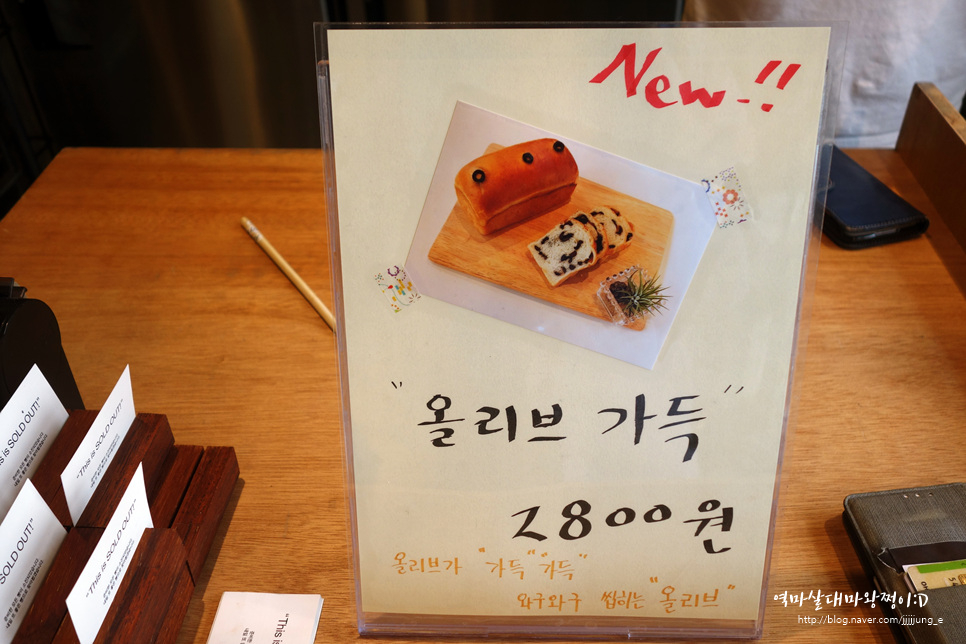 New.!!
"올리브 가득"
2800원
올리브가 "가득" "가득"
와구와구 씹히는 "올리브"
This is SOLD OUT!"
"This is SOLD OUT!"
SOLD OUT!"
"This is SOLD OUT!"
"This is
역마살대마왕쩡이:D
http://blog.naver.com/jjjjjung_e